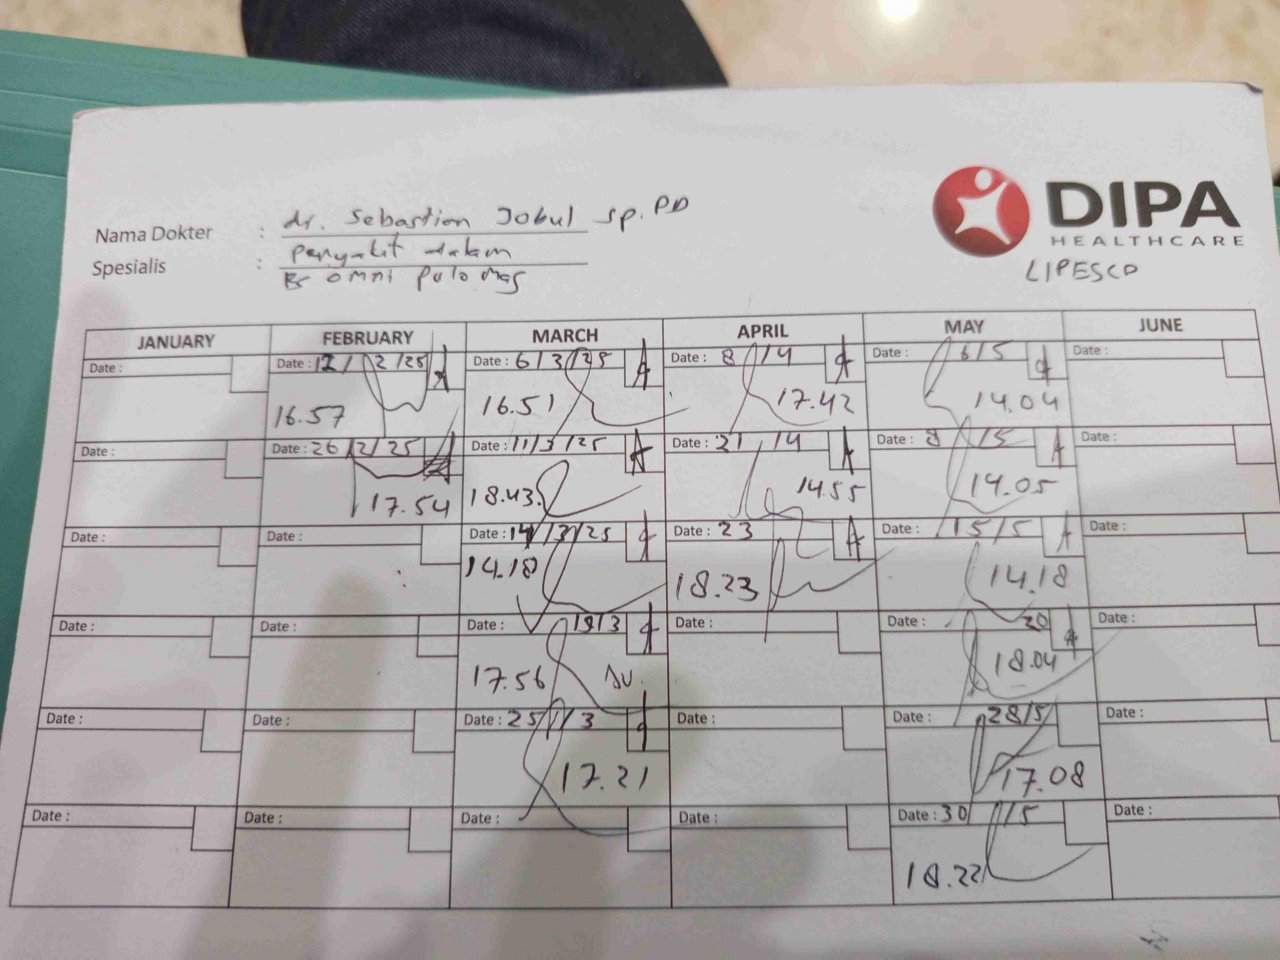 DIPA
HEALTHCARE
LIPESCO
Nama Dokter : dr. Sebastian Jobul Sp. PD
Spesialis : Penyakit dalam
omni pulo mas
JANUARY FEBRUARY MARCH APRIL MAY JUNE
Date : Date : 12/2/25 Date : 6/3/25 Date : 8/4 Date : 6/5 Date :
16.57 16.51 17.42 14.04
Date : Date : 26/2/25 Date : 11/3/25 Date : 21/4 Date : 8/5 Date :
17.54 18.43 14.55 14.05
Date : Date : Date : 14/3/25 Date : 23 Date : 15/5 Date :
14.18 18.23 14.18
Date : Date : Date : 19/3 Date : Date : 20 Date :
17.56 18.04
Date : Date : Date : 25/3 Date : Date : 28/5 Date :
17.21 17.08
Date : Date : Date : Date : Date : 30/5 Date :
18.22